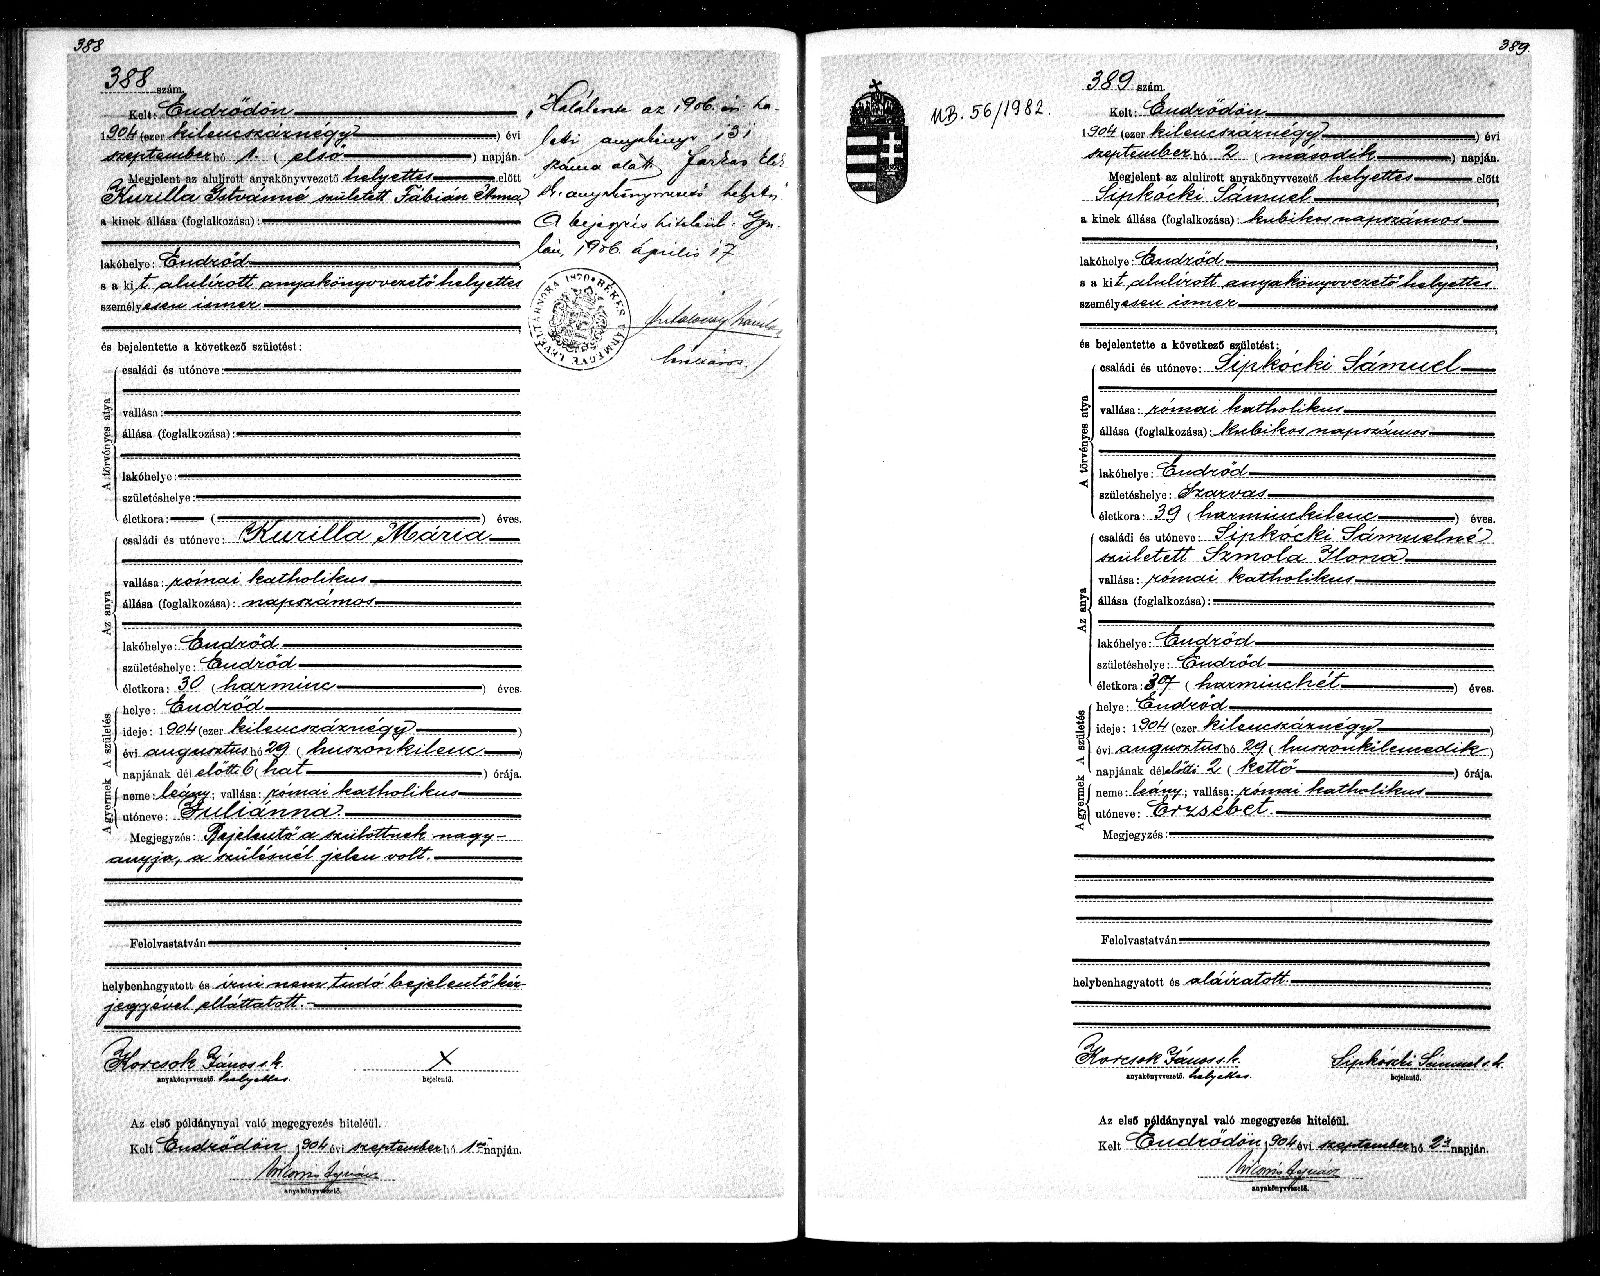 388
388 szám.
Kelt: Endrődön
1904 (ezer kilencszáznégy) évi
szeptember hó 1. (első) napján.
Megjelent az alulirott anyakönyvvezető helyettes előtt
Kurilla Istvánné született Fábián Anna
a kinek állása (foglalkozása):
lakóhelye: Endrőd
s a kit alulírott anyakönyvvezető helyettes
személyesen ismer
és bejelentette a következő születést:
A törvényes atya
családi és utóneve:
vallása:
állása (foglalkozása):
lakóhelye:
születéshelye:
életkora: ( ) éves.
Az anya
családi és utóneve: Kurilla Mária
vallása: római katholikus
állása (foglalkozása): napszámos
lakóhelye: Endrőd
születéshelye: Endrőd
életkora: 30 (harminc) éves.
A születés
helye: Endrőd
ideje: 1904 (ezer kilencszáznégy)
évi augusztus hó 29 (huszonkilenc)
napjának dél előtti 6 (hat) órája.
A gyermek
neme: leány; vallása: római katholikus
utóneve: Juliánna.
Megjegyzés: Bejelentő a szülöttnek nagy-
anyja, a szülésnél jelen volt.
Felolvastatván
helybenhagyatott és írni nem tudó bejelentő kéz-
jegyével elláttatott.
Korcsok János s.k. X
anyakönyvvezető. helyettes. bejelentő.
Az első példánynyal való megegyezés hiteléül.
Kelt Endrődön 1904 évi szeptember hó 1 napján.
anyakönyvvezető.
Halálozta az 1906. évi ha-
lotti anyakönyv 131
száma alatt Farkas
anyakönyvvezető helyettes
A bejegyzés hiteléül. Gyu-
lán, 1906. április 17
BÉKÉS VÁRMEGYE LEVÉLTÁRNOKA 1870
389.
MB. 56/1982.
389 szám.
Kelt: Endrődön
1904 (ezer kilencszáznégy) évi
szeptember hó 2 (második) napján.
Megjelent az alulirott anyakönyvvezető helyettes előtt
Sipkócki Sámuel
a kinek állása (foglalkozása): kubikos napszámos
lakóhelye: Endrőd
s a kit alulírott anyakönyvvezető helyettes
személyesen ismer
és bejelentette a következő születést:
A törvényes atya
családi és utóneve: Sipkócki Sámuel
vallása: római katholikus
állása (foglalkozása): kubikos napszámos
lakóhelye: Endrőd
születéshelye: Szarvas
életkora: 39 (harminckilenc) éves.
Az anya
családi és utóneve: Sipkócki Sámuelné
született Szmola Ilona
vallása: római katholikus
állása (foglalkozása):
lakóhelye: Endrőd
születéshelye: Endrőd
életkora: 37 (harminchét) éves.
A születés
helye: Endrőd
ideje: 1904 (ezer kilencszáznégy)
évi augusztus hó 29 (huszonkilencedik)
napjának délelőtti 2 (kettő) órája.
A gyermek
neme: leány; vallása: római katholikus
utóneve: Erzsébet.
Megjegyzés:
Felolvastatván
helybenhagyatott és aláiratott.
Korcsok János s.k. Sipkócki Sámuel s.k.
anyakönyvvezető. helyettes. bejelentő.
Az első példánynyal való megegyezés hiteléül.
Kelt Endrődön 1904 évi szeptember hó 2 napján.
anyakönyvvezető.